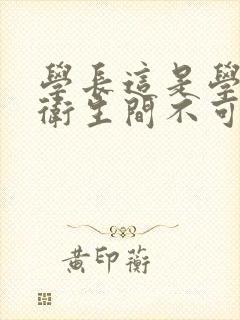 學長這是學
衛生間不可
黃印蘅